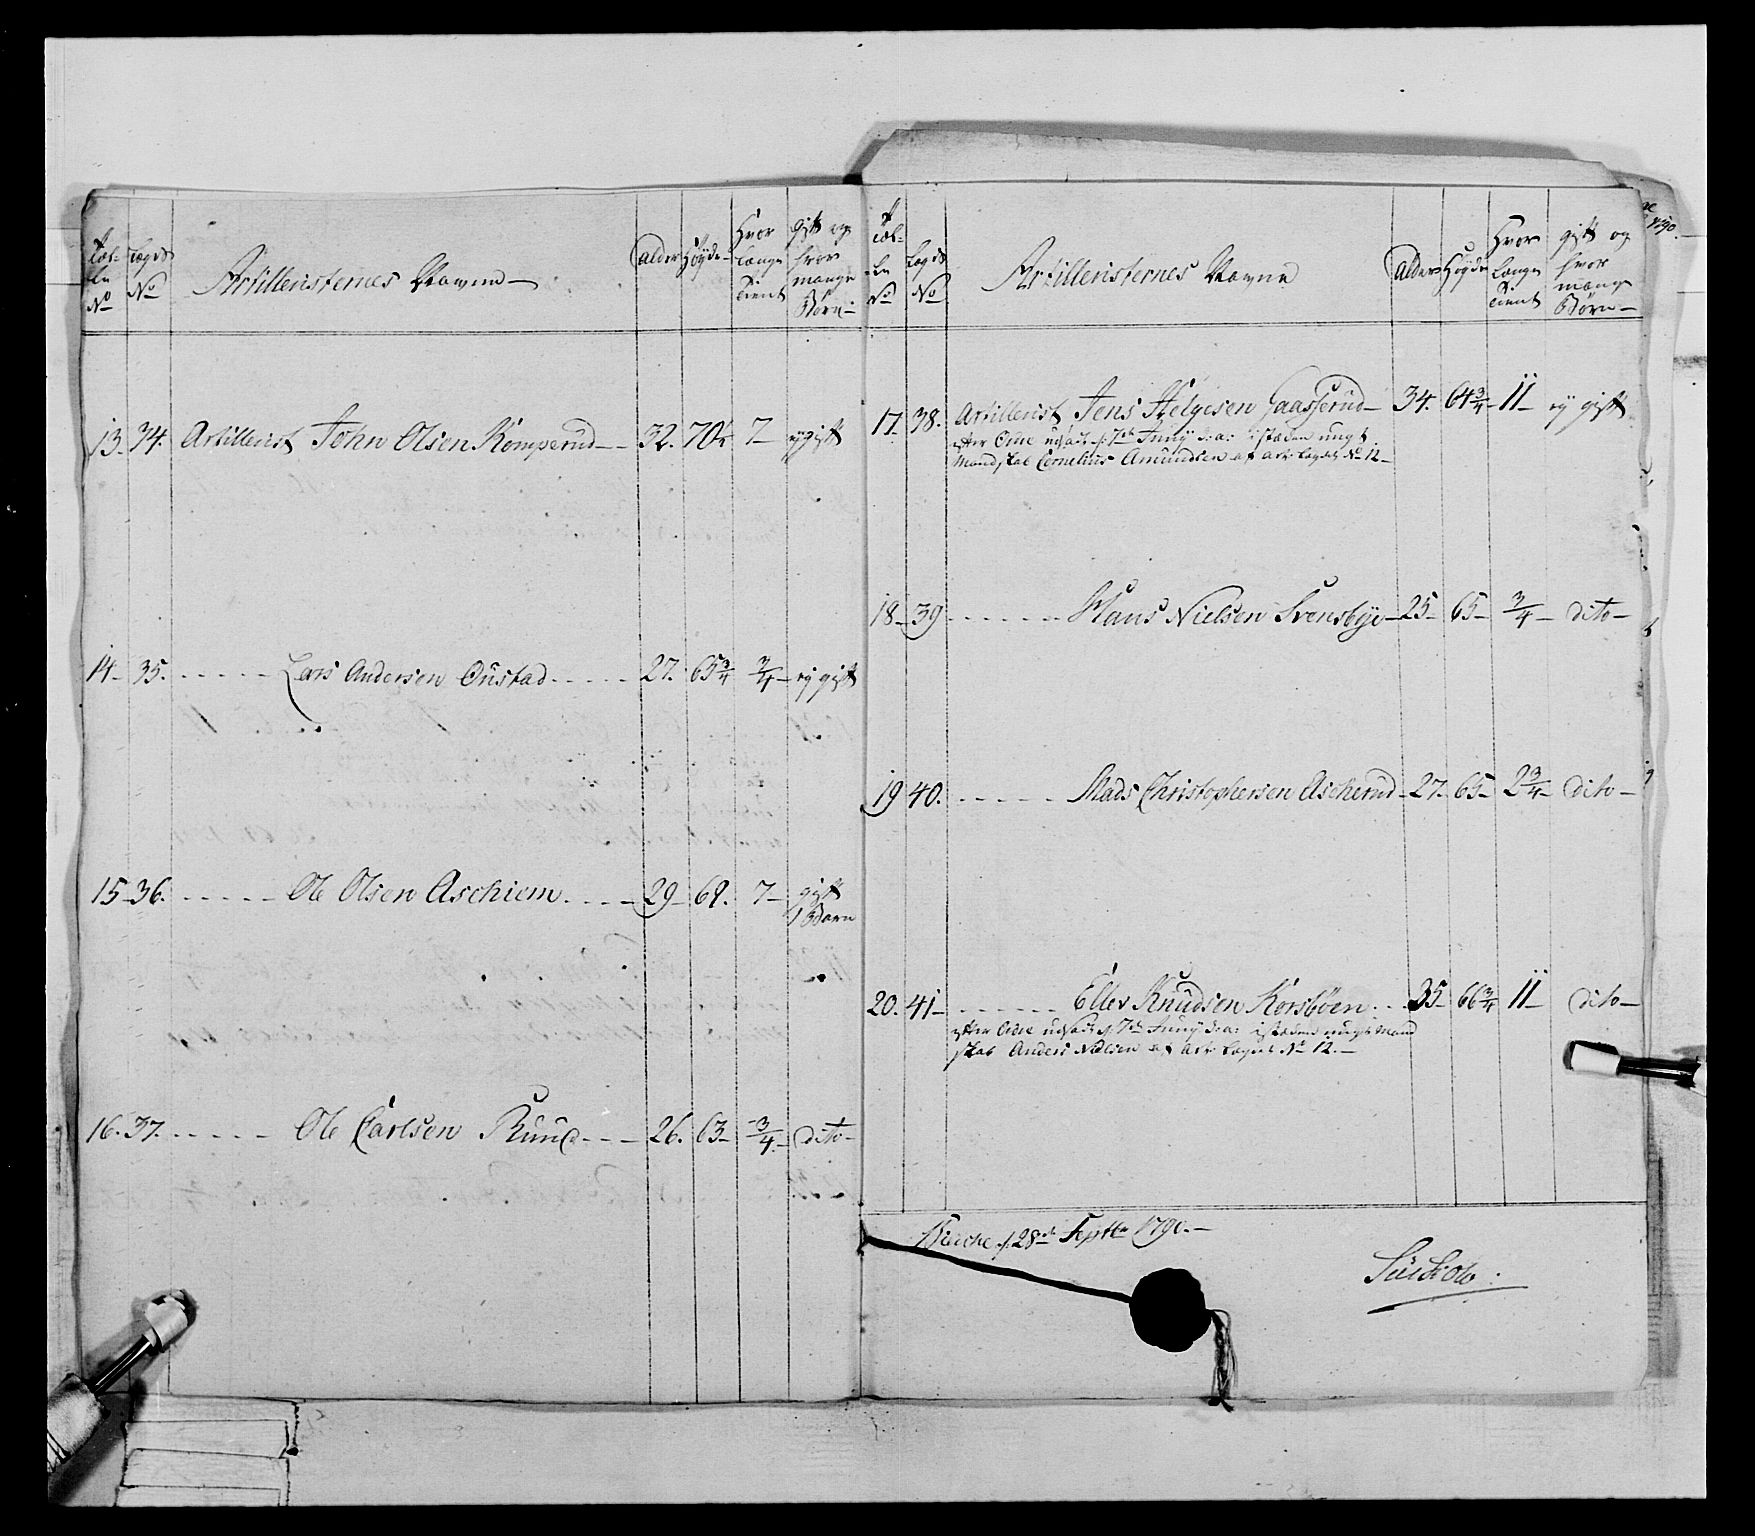 Tæl-
le
No
Lægds
No
Artilleristernes Navne
Alder
Høyde
Hvor
længe
Tient
gift og
hvor
mange
Børn
13. 34. Artillerist John Olsen Komperud 32. 70½ 7 ey gift
14. 35. Lars Andersen Onstad 27. 65¾ ¾ ey gift
15. 36. Ole Olsen Aschiem 29 69. 7 gift
1 Barn
16. 37. Ole Carlsen Ruud 26. 63 ¾ dito
Tæl-
le
No
Lægds
No
Artilleristernes Navne
Alder
Høyde
Hvor
længe
Tient
gift og
hvor
mange
Børn
17. 38. Artillerist Jens Helgesen Gaasserud 34. 64¾ 11 ey gift
efter Ordre udsadt d: 7de Junÿ d: a: istæden ungt
Mandskab Cornelius Amundsen af Art: Lægds No 12
18 39 Hans Nielsen Svensbye 25 65 ¾ dito
19 40. Mads Christophersen Ascherud 27 65 2¾ dito
20. 41 Ellev Knudsen Korsbøen 35 66¾ 11 dito
efter Ordre udsadt d: 7de Junÿ d: a: istæden ungt Mand
skab Anders Nielsen af Art: Lægds No 12.
d: 28de Septbr 1790.
Sückow